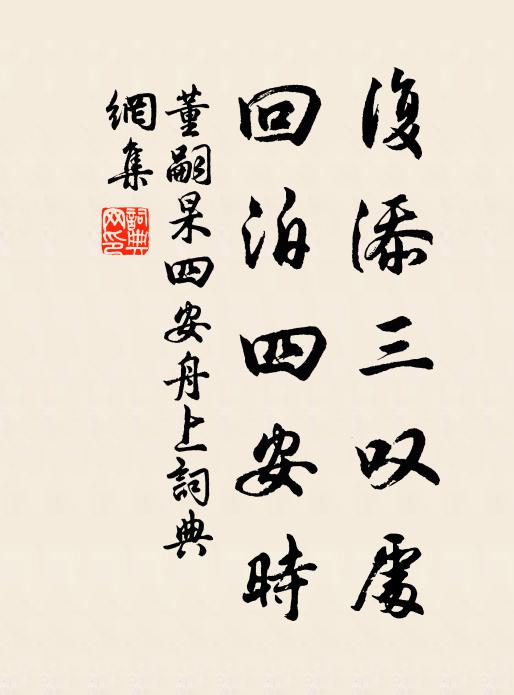 復添三叹處
回泊四安時
董嗣杲四安舟上詞典
網集
詞典网印